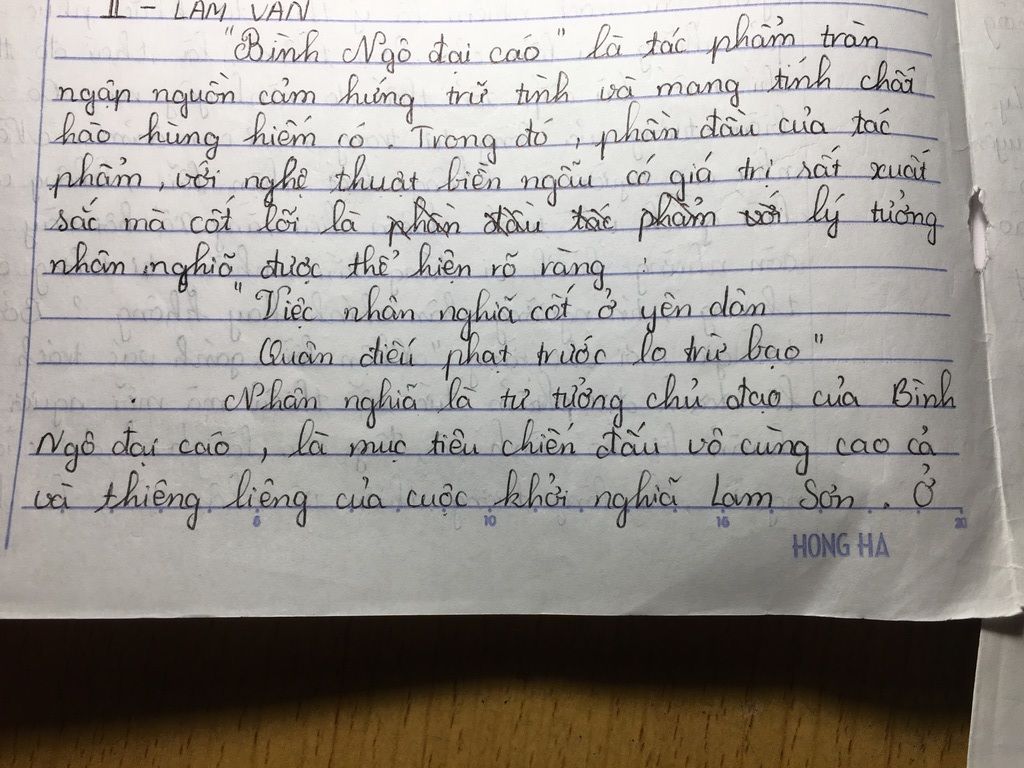 II - LÀM VĂN
"Bình Ngô đại cáo" là tác phẩm tràn
ngập nguồn cảm hứng trữ tình và mang tính chất
hào hùng hiếm có. Trong đó, phần đầu của tác
phẩm, với nghệ thuật biền ngẫu có giá trị sất xuất
sắc mà cốt lõi là phần đầu tác phẩm với lý tưởng
nhân nghĩa được thể hiện rõ ràng :
"Việc nhân nghĩa cốt ở yên dân
Quân điếu phạt trước lo trừ bạo"
Nhân nghĩa là tư tưởng chủ đạo của Bình
Ngô đại cáo, là mục tiêu chiến đấu vô cùng cao cả
và thiêng liêng của cuộc khởi nghĩa Lam Sơn. Ở
5 10 15 20
HONG HA